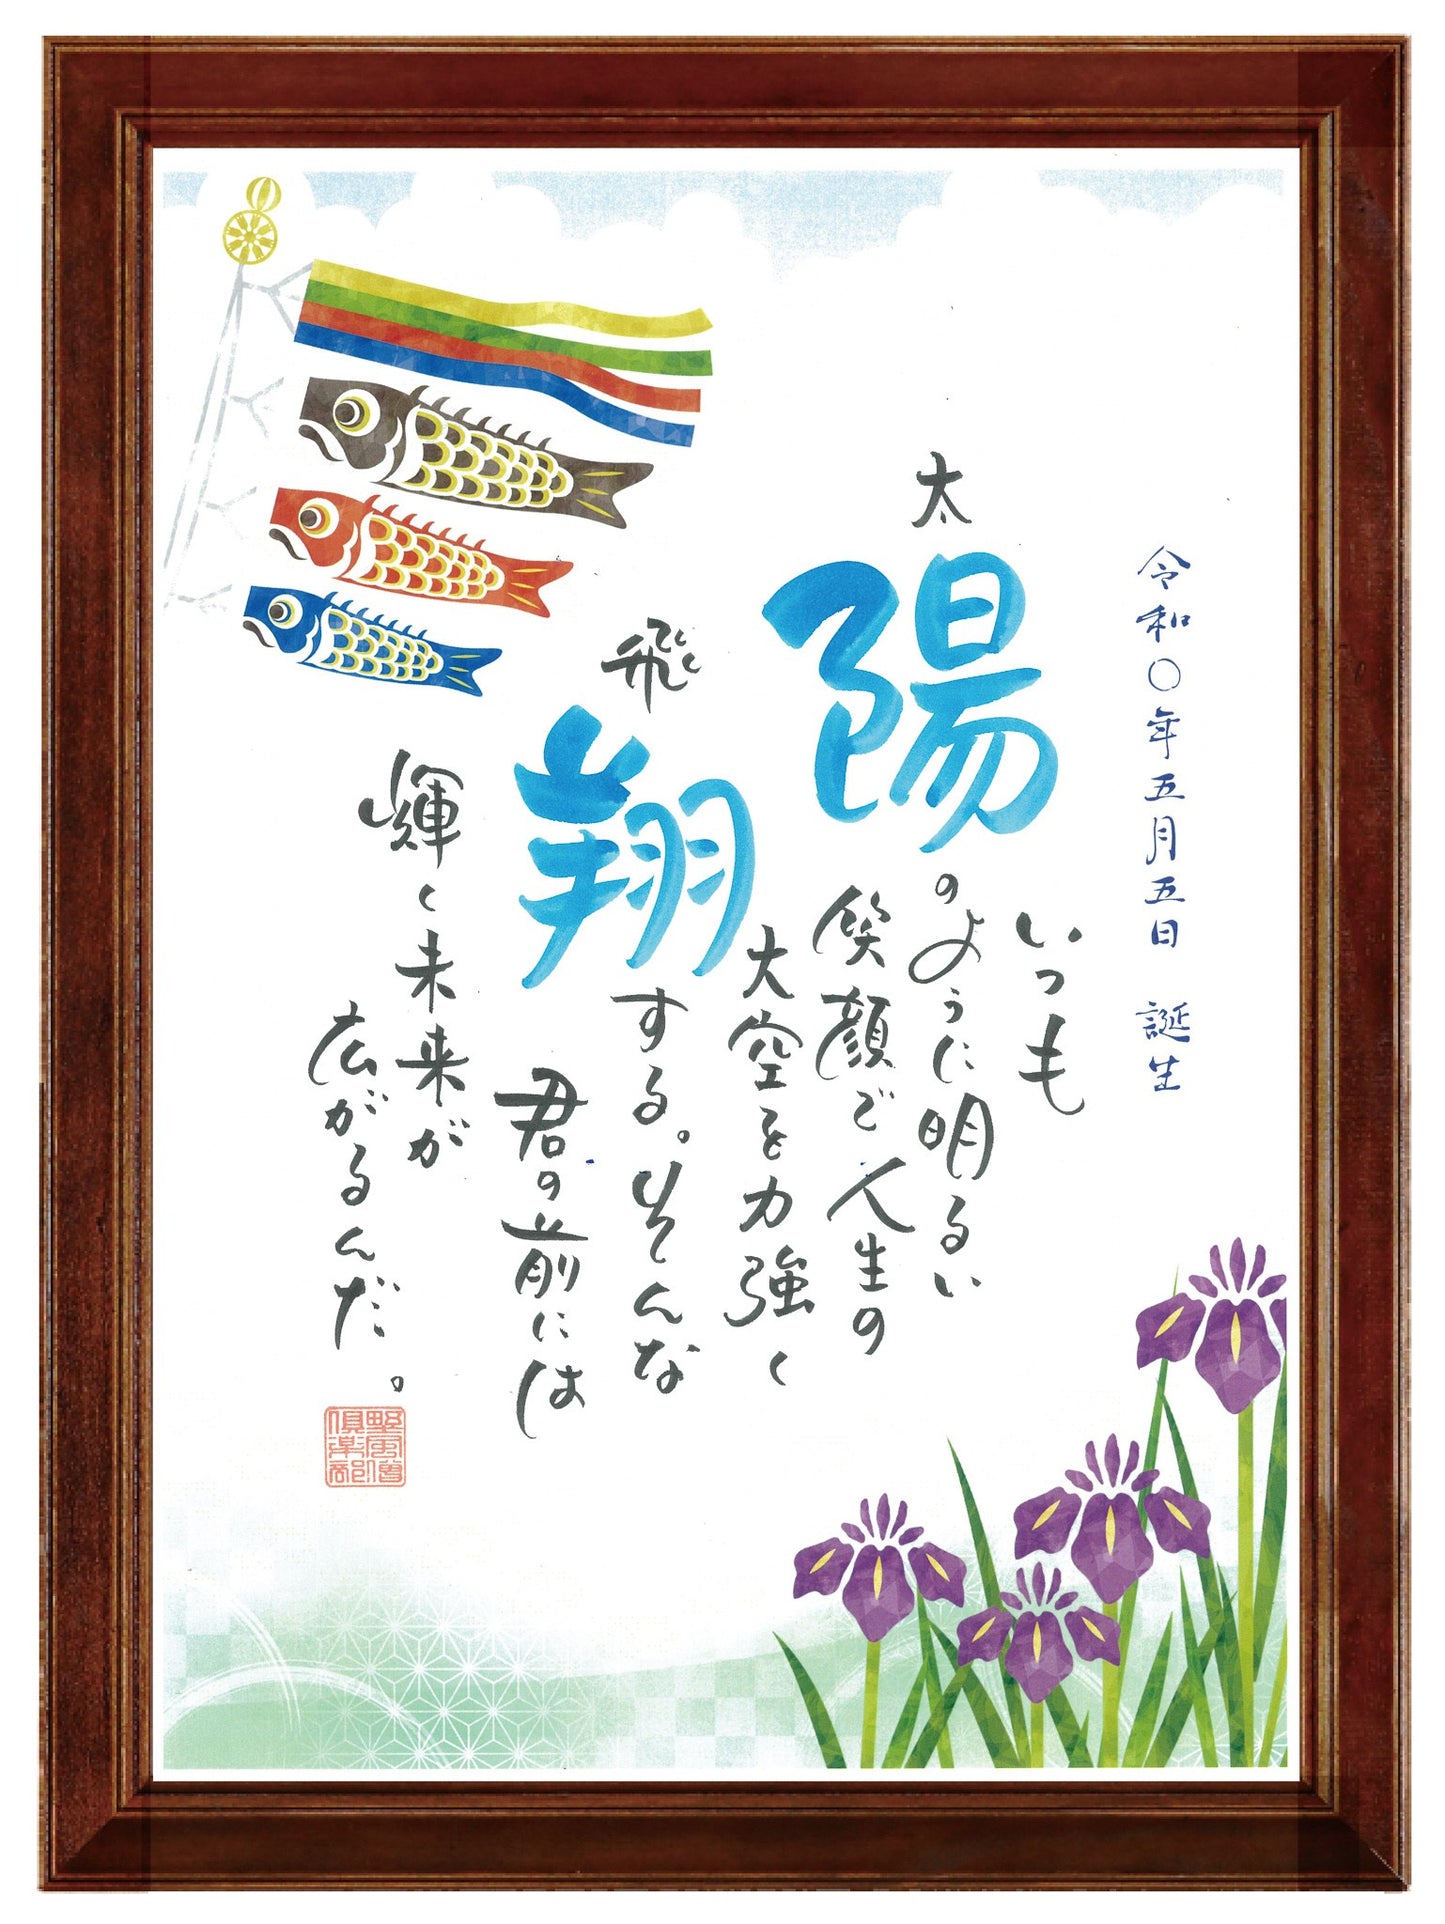 令和〇年五月五日 誕生
いつも
太陽のように明るい
笑顔で人生の
大空を力強く
飛翔する。そんな
君の前には
輝く未来が
広がるんだ。
野風僧
倶楽部